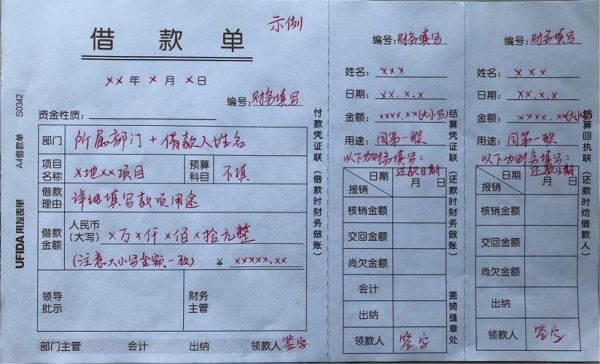 借款单
示例
××年×月×日
编号:财务填写
资金性质:
部门 所属部门+借款人姓名
项目名称 ×地××项目 预算科目 不填
借款理由 详细填写款项用途
借款金额 人民币(大写) ×万×仟×佰×拾元整
(注意大小写金额一致) ¥ ×××××.××
领导批示 财务主管
部门主管 会计 出纳 领款人 签字
付款凭证联(借款时财务做账)
UFIDA 用友表单 A4借款单 S0342
编号:财务填写
姓名:×××
日期:××.×.×
金额:××××.××(大小写)
用途:同第一联
以下为财务填写:
还款日期
日期 月 日
报销
核销金额
交回金额
尚欠金额
会计
出纳
领款人 签字
结算凭证联(还款时财务做账)
盖骑缝章处
编号:财务填写
姓名:×××
日期:××.×.×
金额:××××.××(大小写)
用途:同第一联
以下为财务填写:
还款日期
日期 月 日
报销
核销金额
交回金额
尚欠金额
出纳
领款人 签字
结算回执联(还款时给借款人)